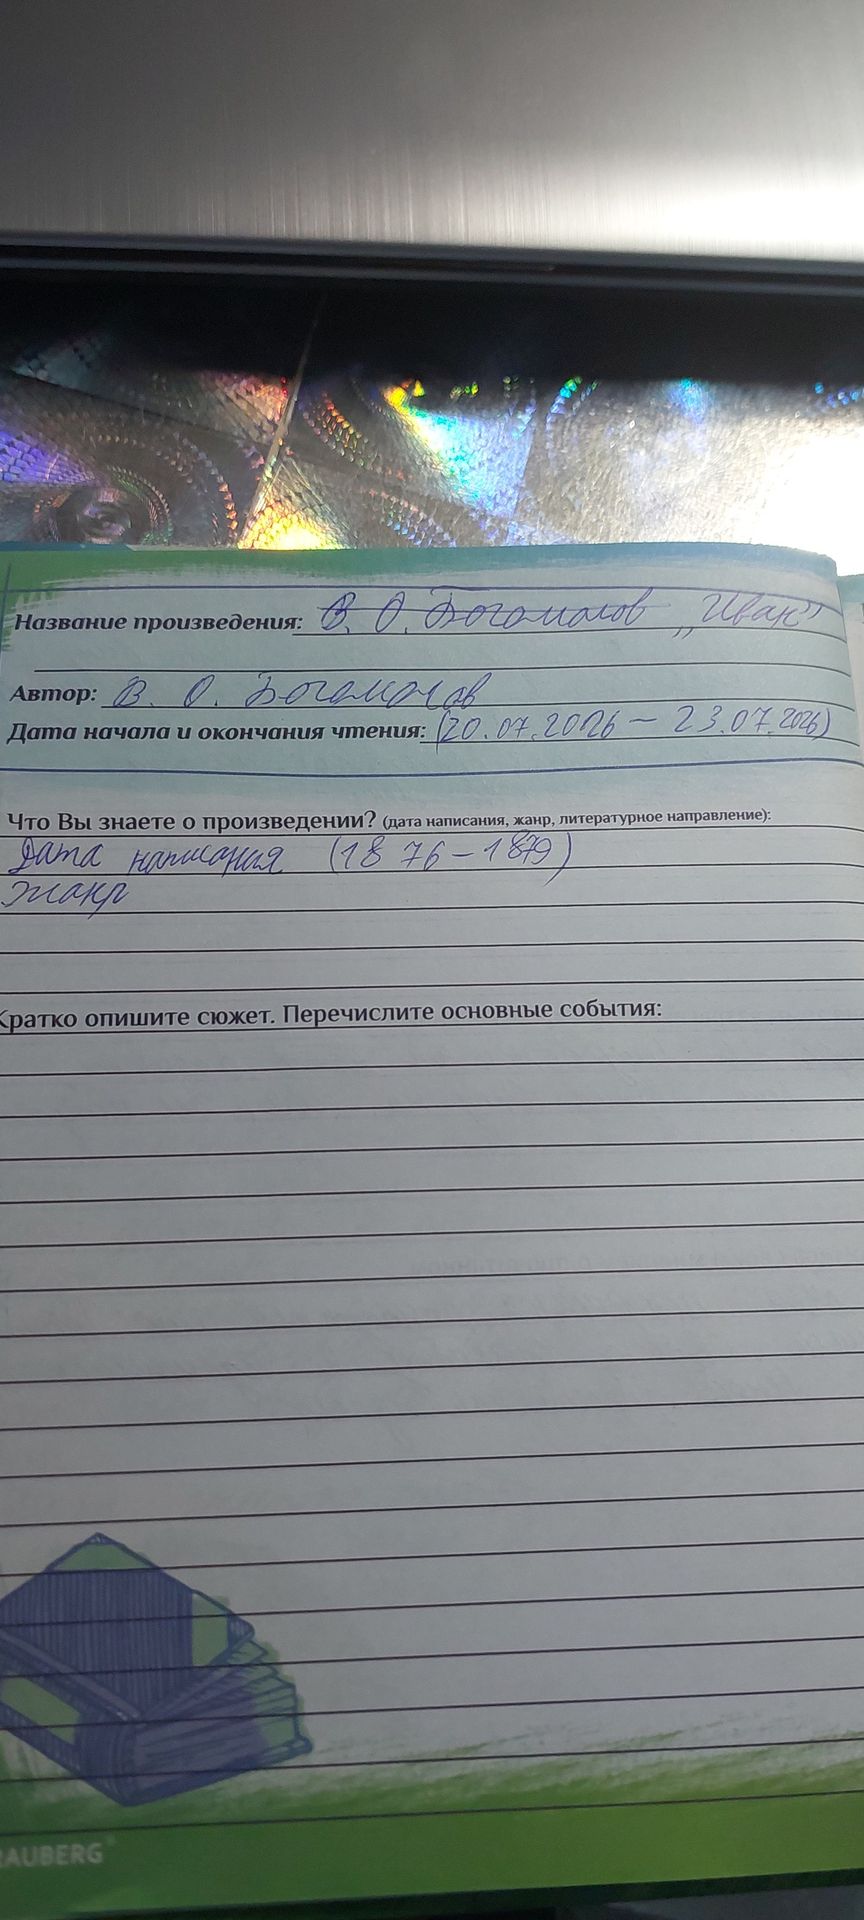 Название произведения: В. О. Богомолов „Иван"
Автор: В. О. Богомолов
Дата начала и окончания чтения: (20.07.2026 – 23.07.2026)
Что Вы знаете о произведении? (дата написания, жанр, литературное направление):
Дата написания (1876 – 1879)
Жанр
Кратко опишите сюжет. Перечислите основные события:
RAUBERG